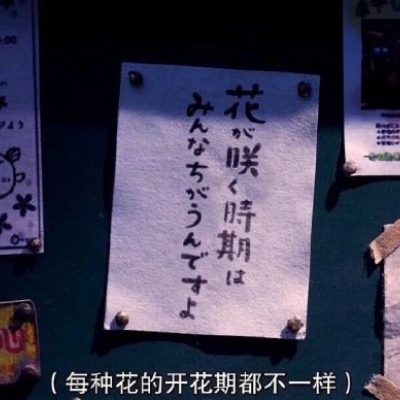 花が咲く時期は
みんなちがうんですよ
(每种花的开花期都不一样)